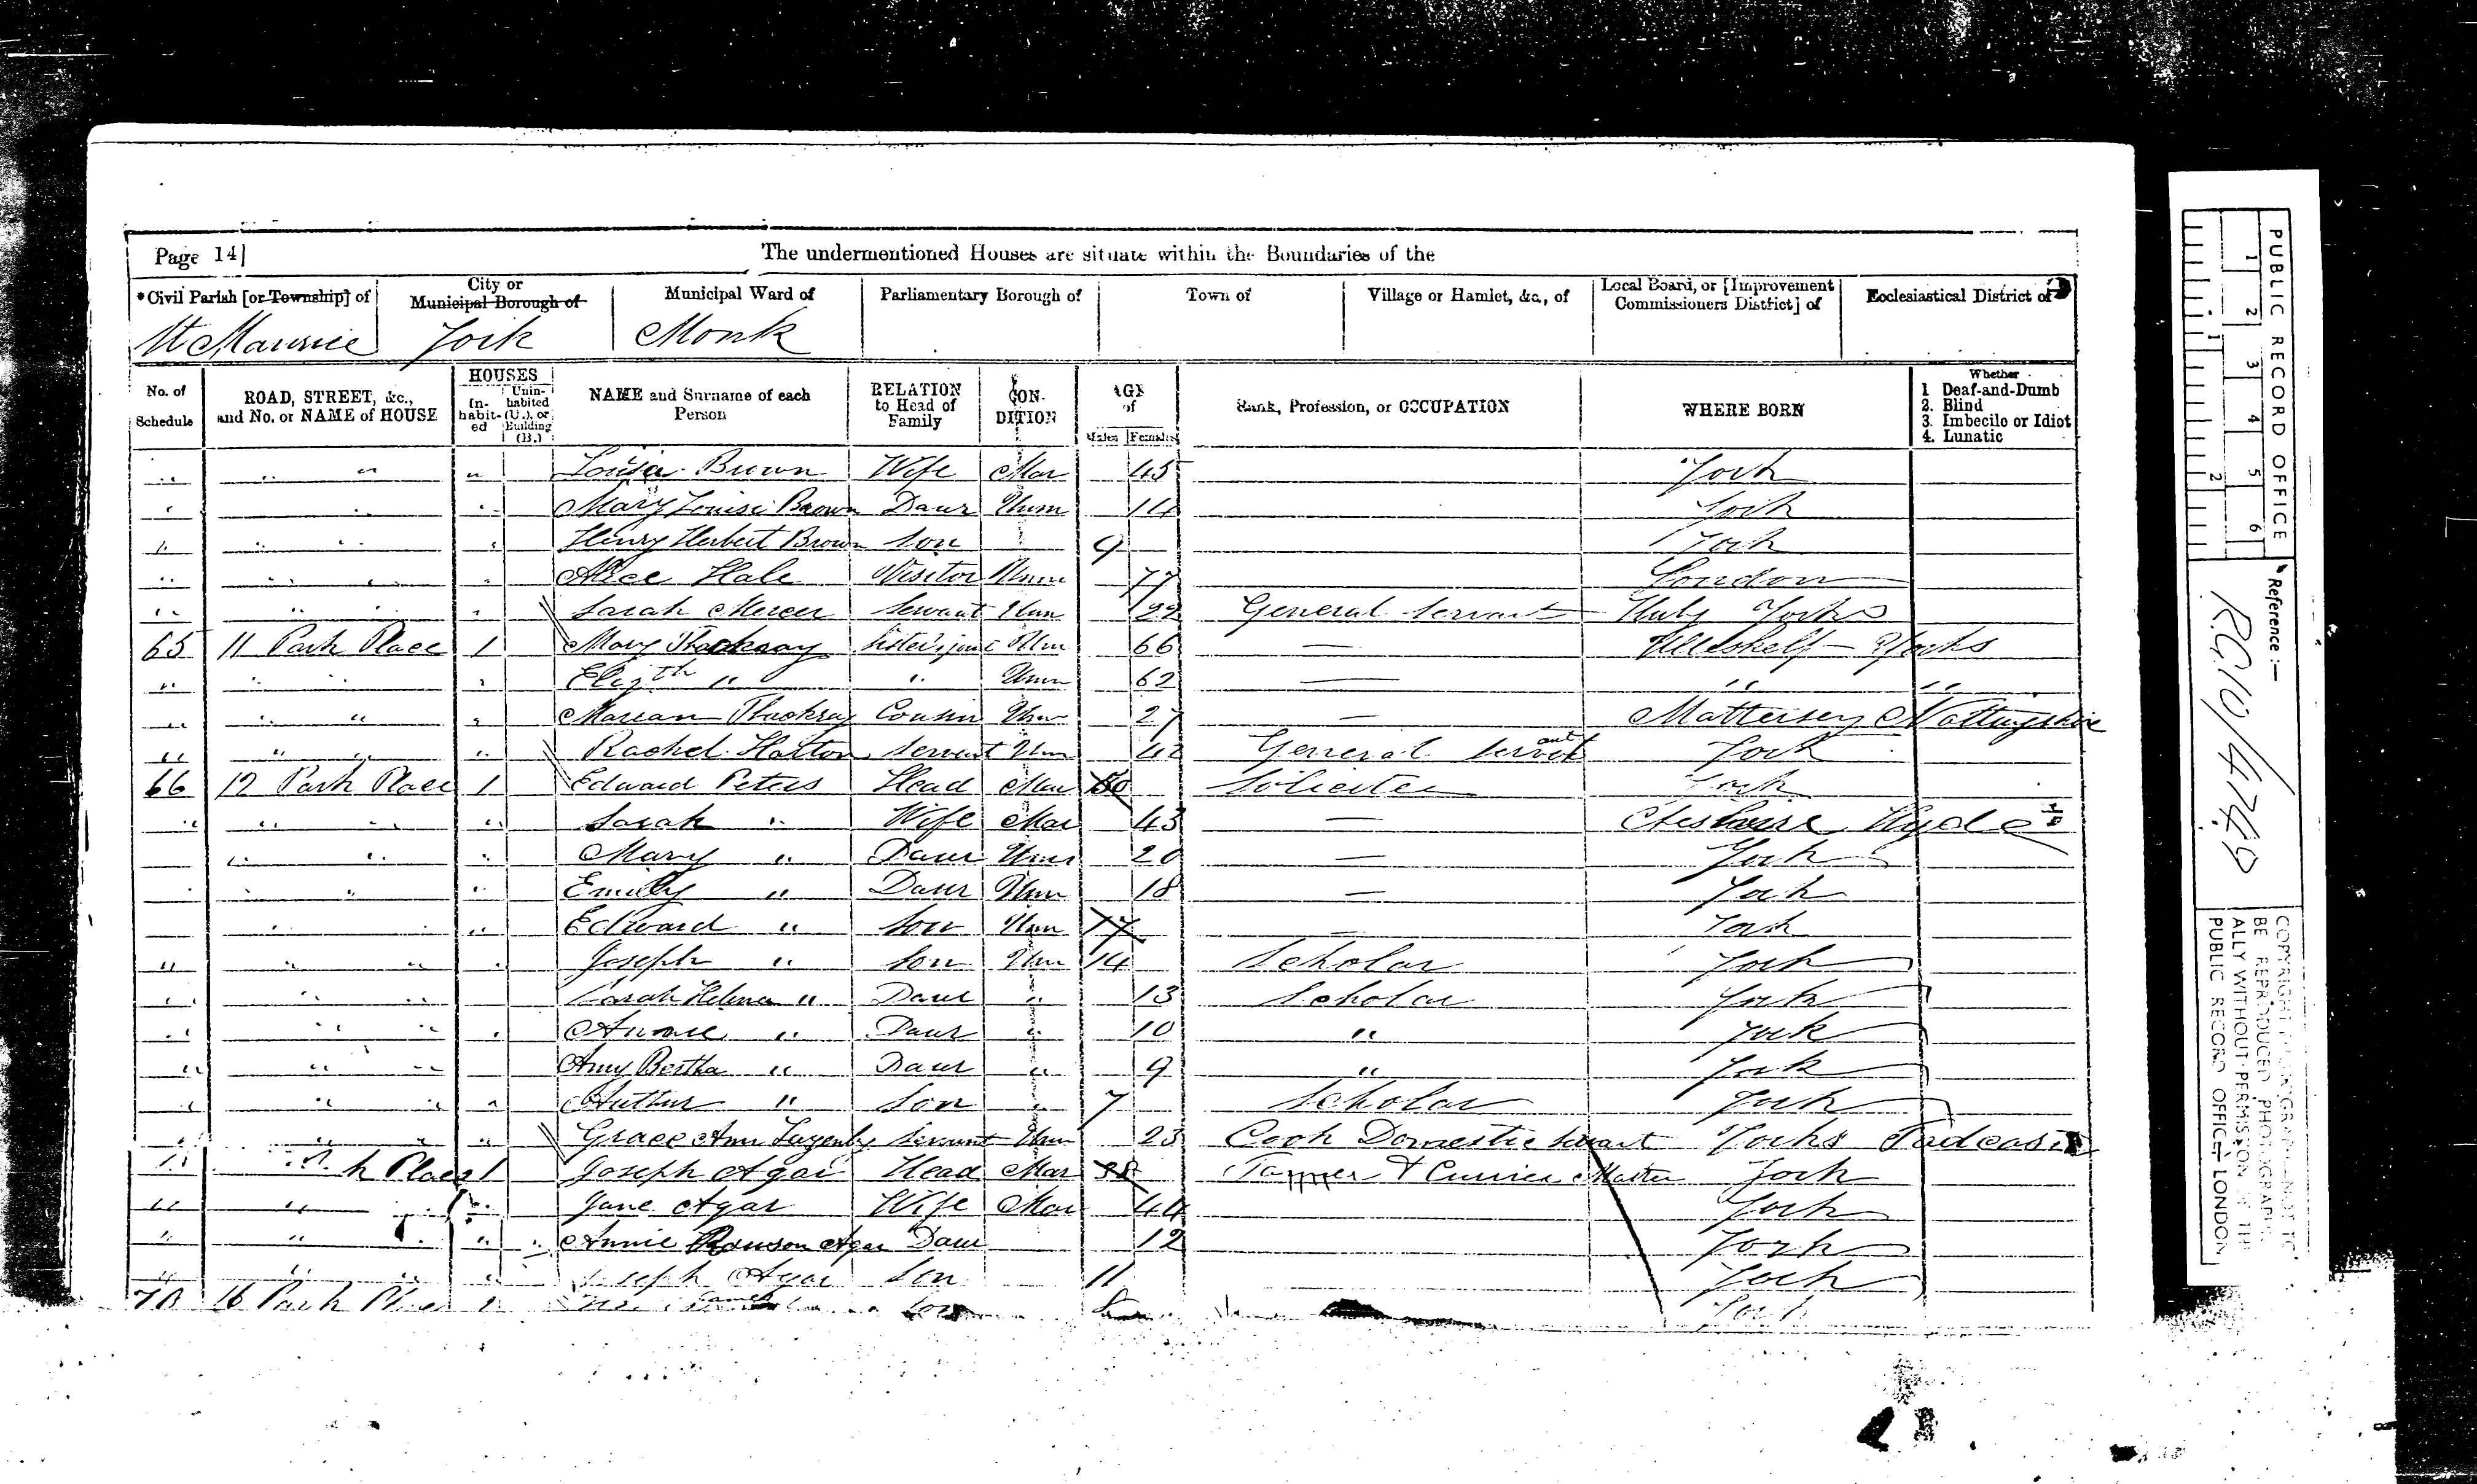 Page 14
The undermentioned Houses are situate within the Boundaries of the
*Civil Parish [or Township] of City or Municipal Borough of Municipal Ward of Parliamentary Borough of Town of Village or Hamlet, &c., of Local Board, or [Improvement Commissioners District] of Ecclesiastical District of
St Maurice York Monk
No. of Schedule ROAD, STREET, &c., and No. or NAME of HOUSE HOUSES Inhabited Uninhabited (U.), or Building (B.) NAME and Surname of each Person RELATION to Head of Family CONDITION AGE of Males Females Rank, Profession, or OCCUPATION WHERE BORN Whether 1 Deaf-and-Dumb 2. Blind 3. Imbecile or Idiot 4. Lunatic
" " " " Louisa Brown Wife Mar 45 York
" " " Mary Louisa Brown Daur Unm 14 York
" " " " Henry Herbert Brown Son 9 York
" " " " Alice Hale Visitor Unm 77 London
" " " " Sarah Mercer Servant Unm 22 General Servant Yorks
65 11 Park Place 1 Mary Thackray Unm 66 — Ulleskelf Yorks
" " " " Elizth " " Unm 62 — " "
" " " " Marian Thackray Cousin Unm 27 — Mattersey Nottingshire
" " " " Rachel Servant Unm 42 General Servant York
66 12 Park Place 1 Edward Peters Head Mar 50 Solicitor York
" " " " Sarah " Wife Mar 43 — Cheshire Hyde
" " " Mary " Daur Unm 20 — York
" " " " Emily " Daur Unm 18 — York
" " " Edward " Son Unm 17 — York
" " " " Joseph " Son Unm 14 Scholar York
" " " Sarah Helena " Daur " 13 Scholar York
" " " " Annie " Daur " 10 " York
" " " Amy Bertha " Daur " 9 " York
" " " " Arthur " Son " 7 Scholar York
" " " " Grace Ann Lazenby Servant Unm 23 Cook Domestic Servant Yorks
" Place 1 Joseph Agar Head Mar 38 Tanner & Currier Master York
" " " " Jane Agar Wife Mar 44 York
" " " " Annie Rawson Agar Daur 12 York
" " " " Joseph Agar Son 11 York
70 16 Park Place 1 Son York
PUBLIC RECORD OFFICE
1 2 3 4 5 6
1 2
Reference:—
R.G. 10/4749
COPYRIGHT PHOTOGRAPH—NOT TO BE REPRODUCED PHOTOGRAPHICALLY WITHOUT PERMISSION OF THE PUBLIC RECORD OFFICE, LONDON